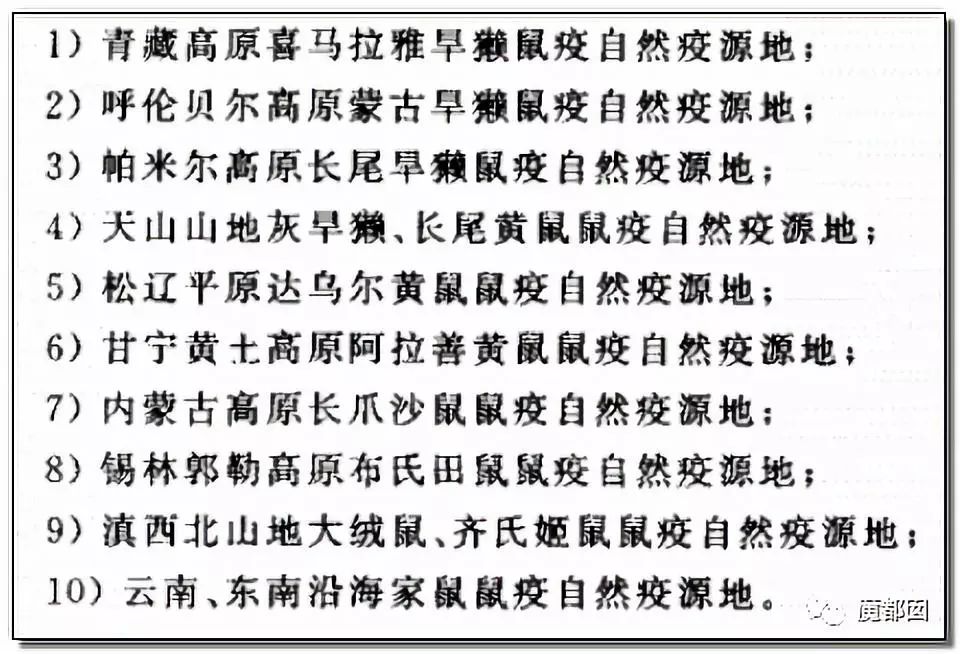 1) 青藏高原喜马拉雅旱獭鼠疫自然疫源地；
2) 呼伦贝尔高原蒙古旱獭鼠疫自然疫源地；
3) 帕米尔高原长尾旱獭鼠疫自然疫源地；
4) 天山山地灰旱獭、长尾黄鼠鼠疫自然疫源地；
5) 松辽平原达乌尔黄鼠鼠疫自然疫源地；
6) 甘宁黄土高原阿拉善黄鼠鼠疫自然疫源地；
7) 内蒙古高原长爪沙鼠鼠疫自然疫源地；
8) 锡林郭勒高原布氏田鼠鼠疫自然疫源地；
9) 滇西北山地大绒鼠、齐氏姬鼠鼠疫自然疫源地；
10) 云南、东南沿海家鼠鼠疫自然疫源地。